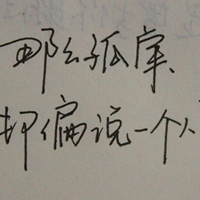 那么孤
却偏说一个人